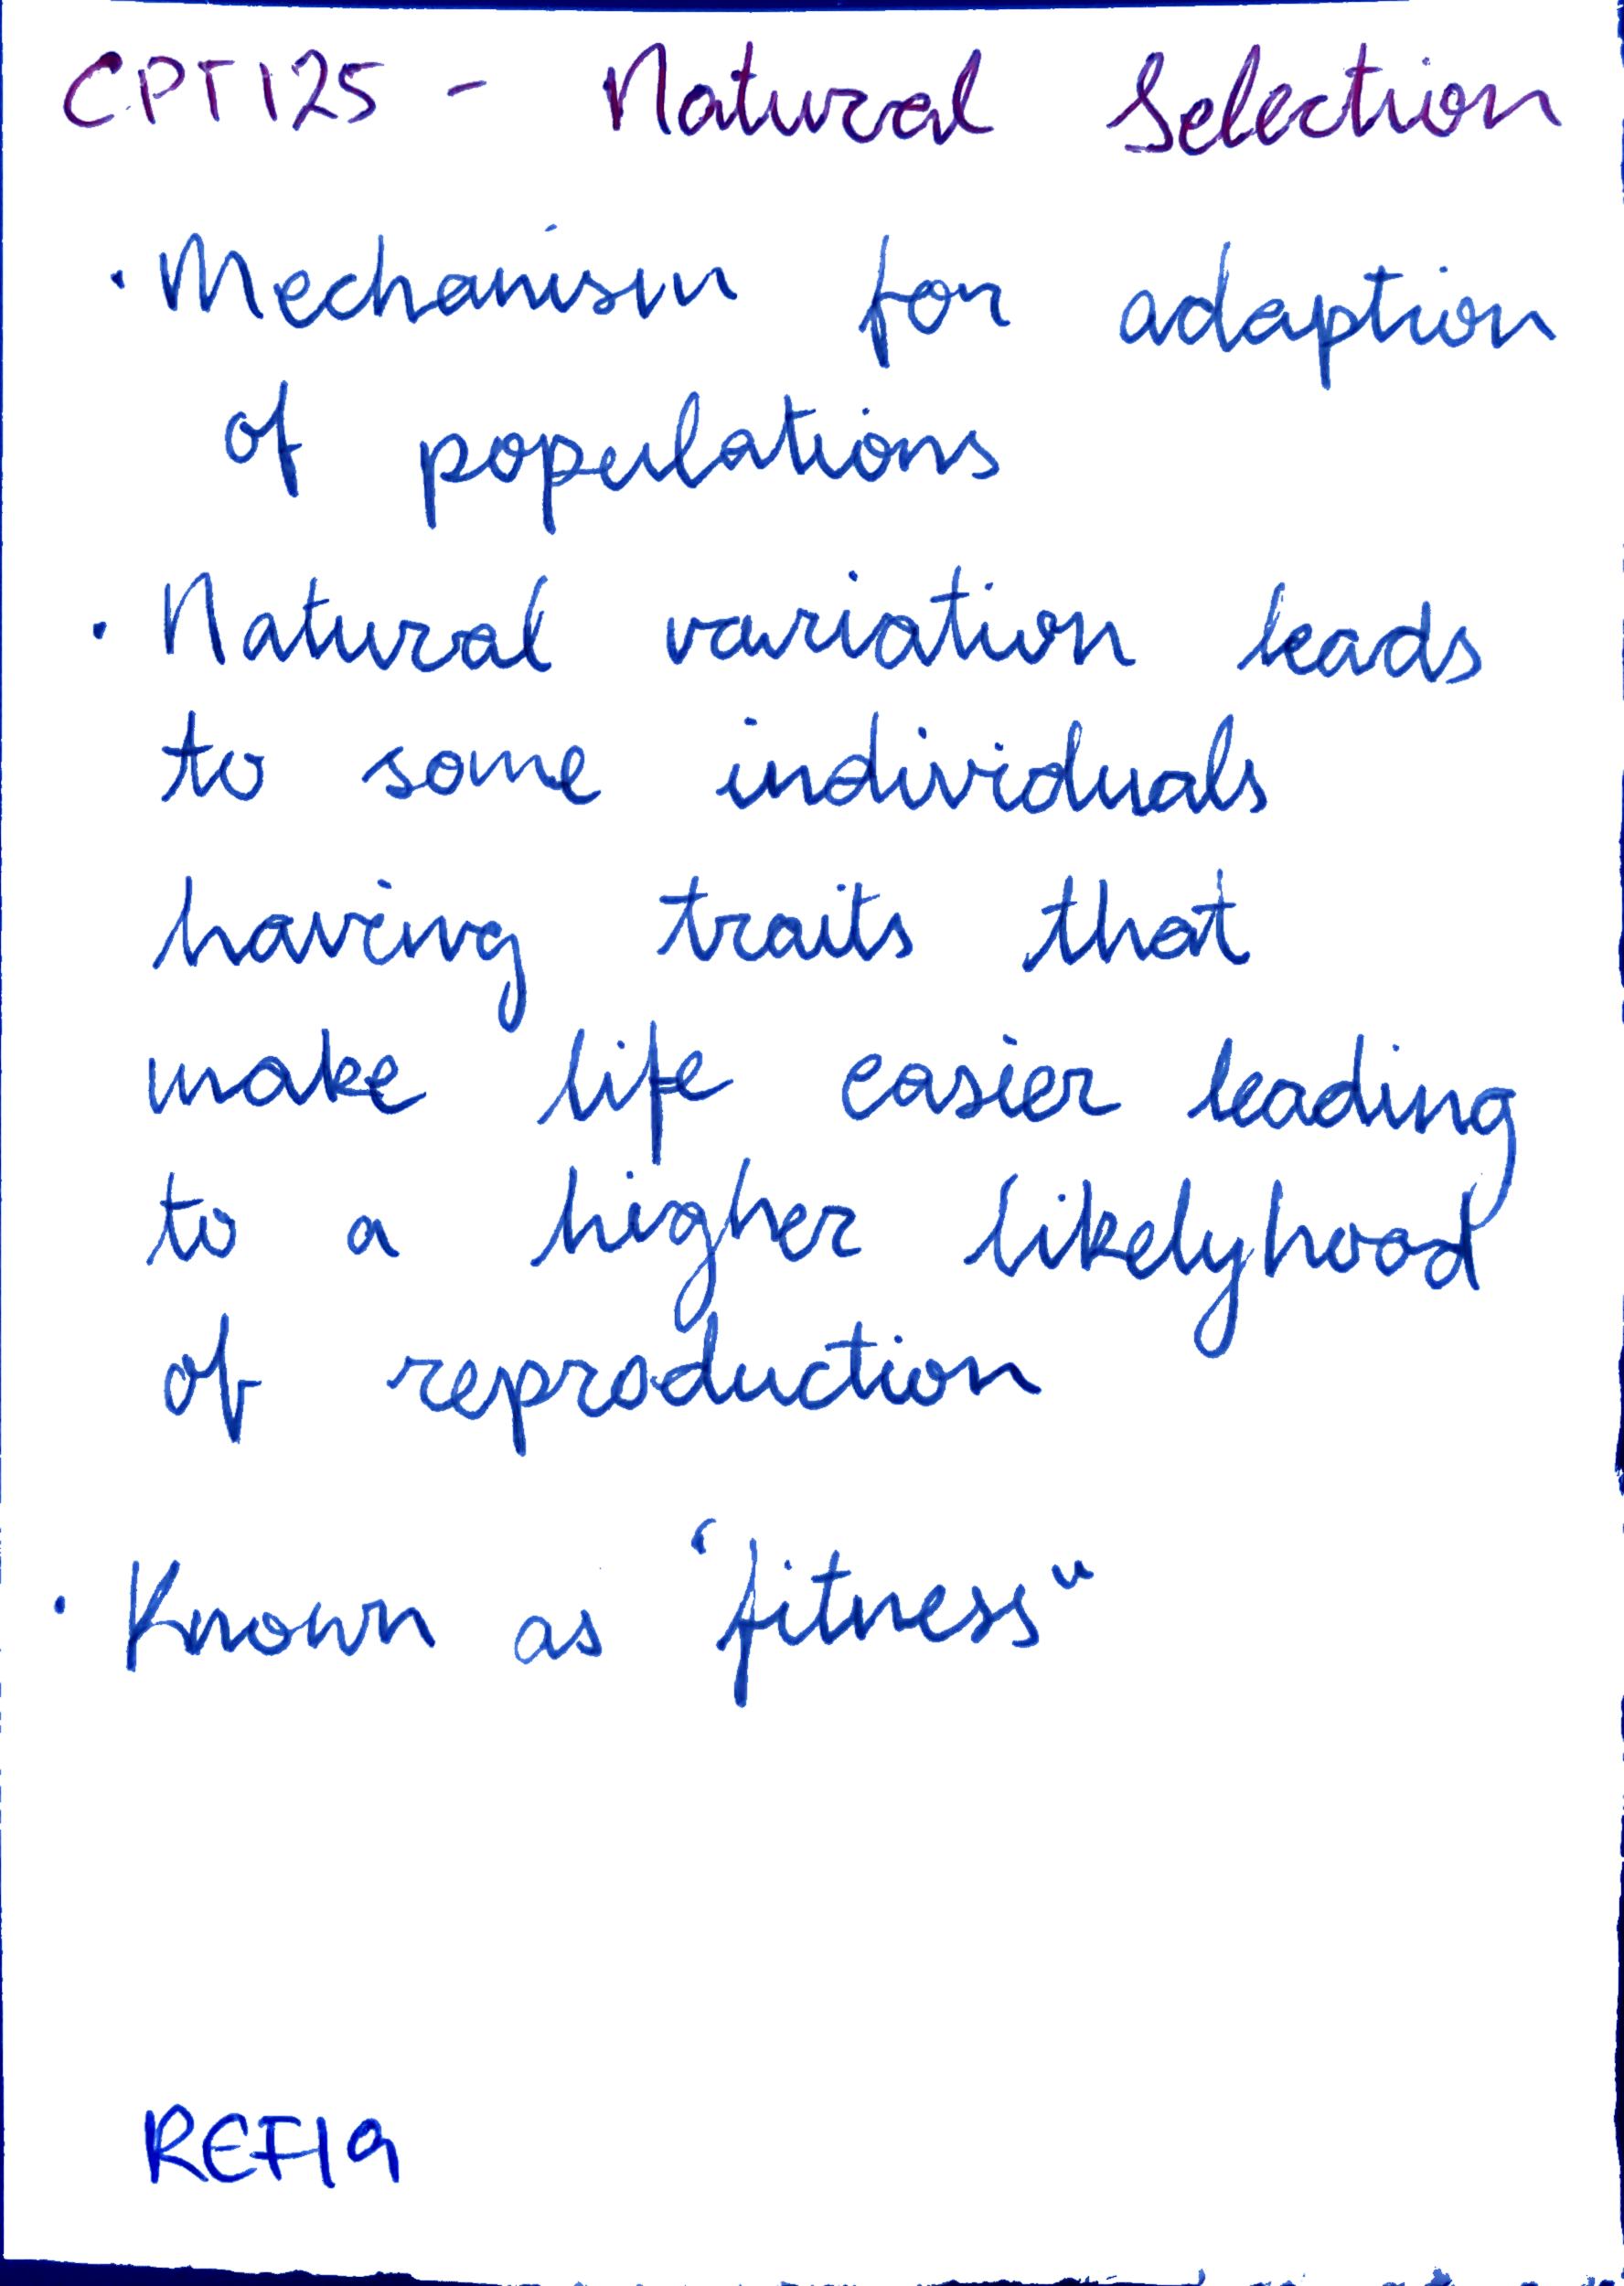 CPT125 - Natural Selection
· Mechanism for adaption
of populations
· Natural variation leads
to some individuals
having traits that
make life easier leading
to a higher likelyhood
of reproduction
· Known as "fitness"
REF19